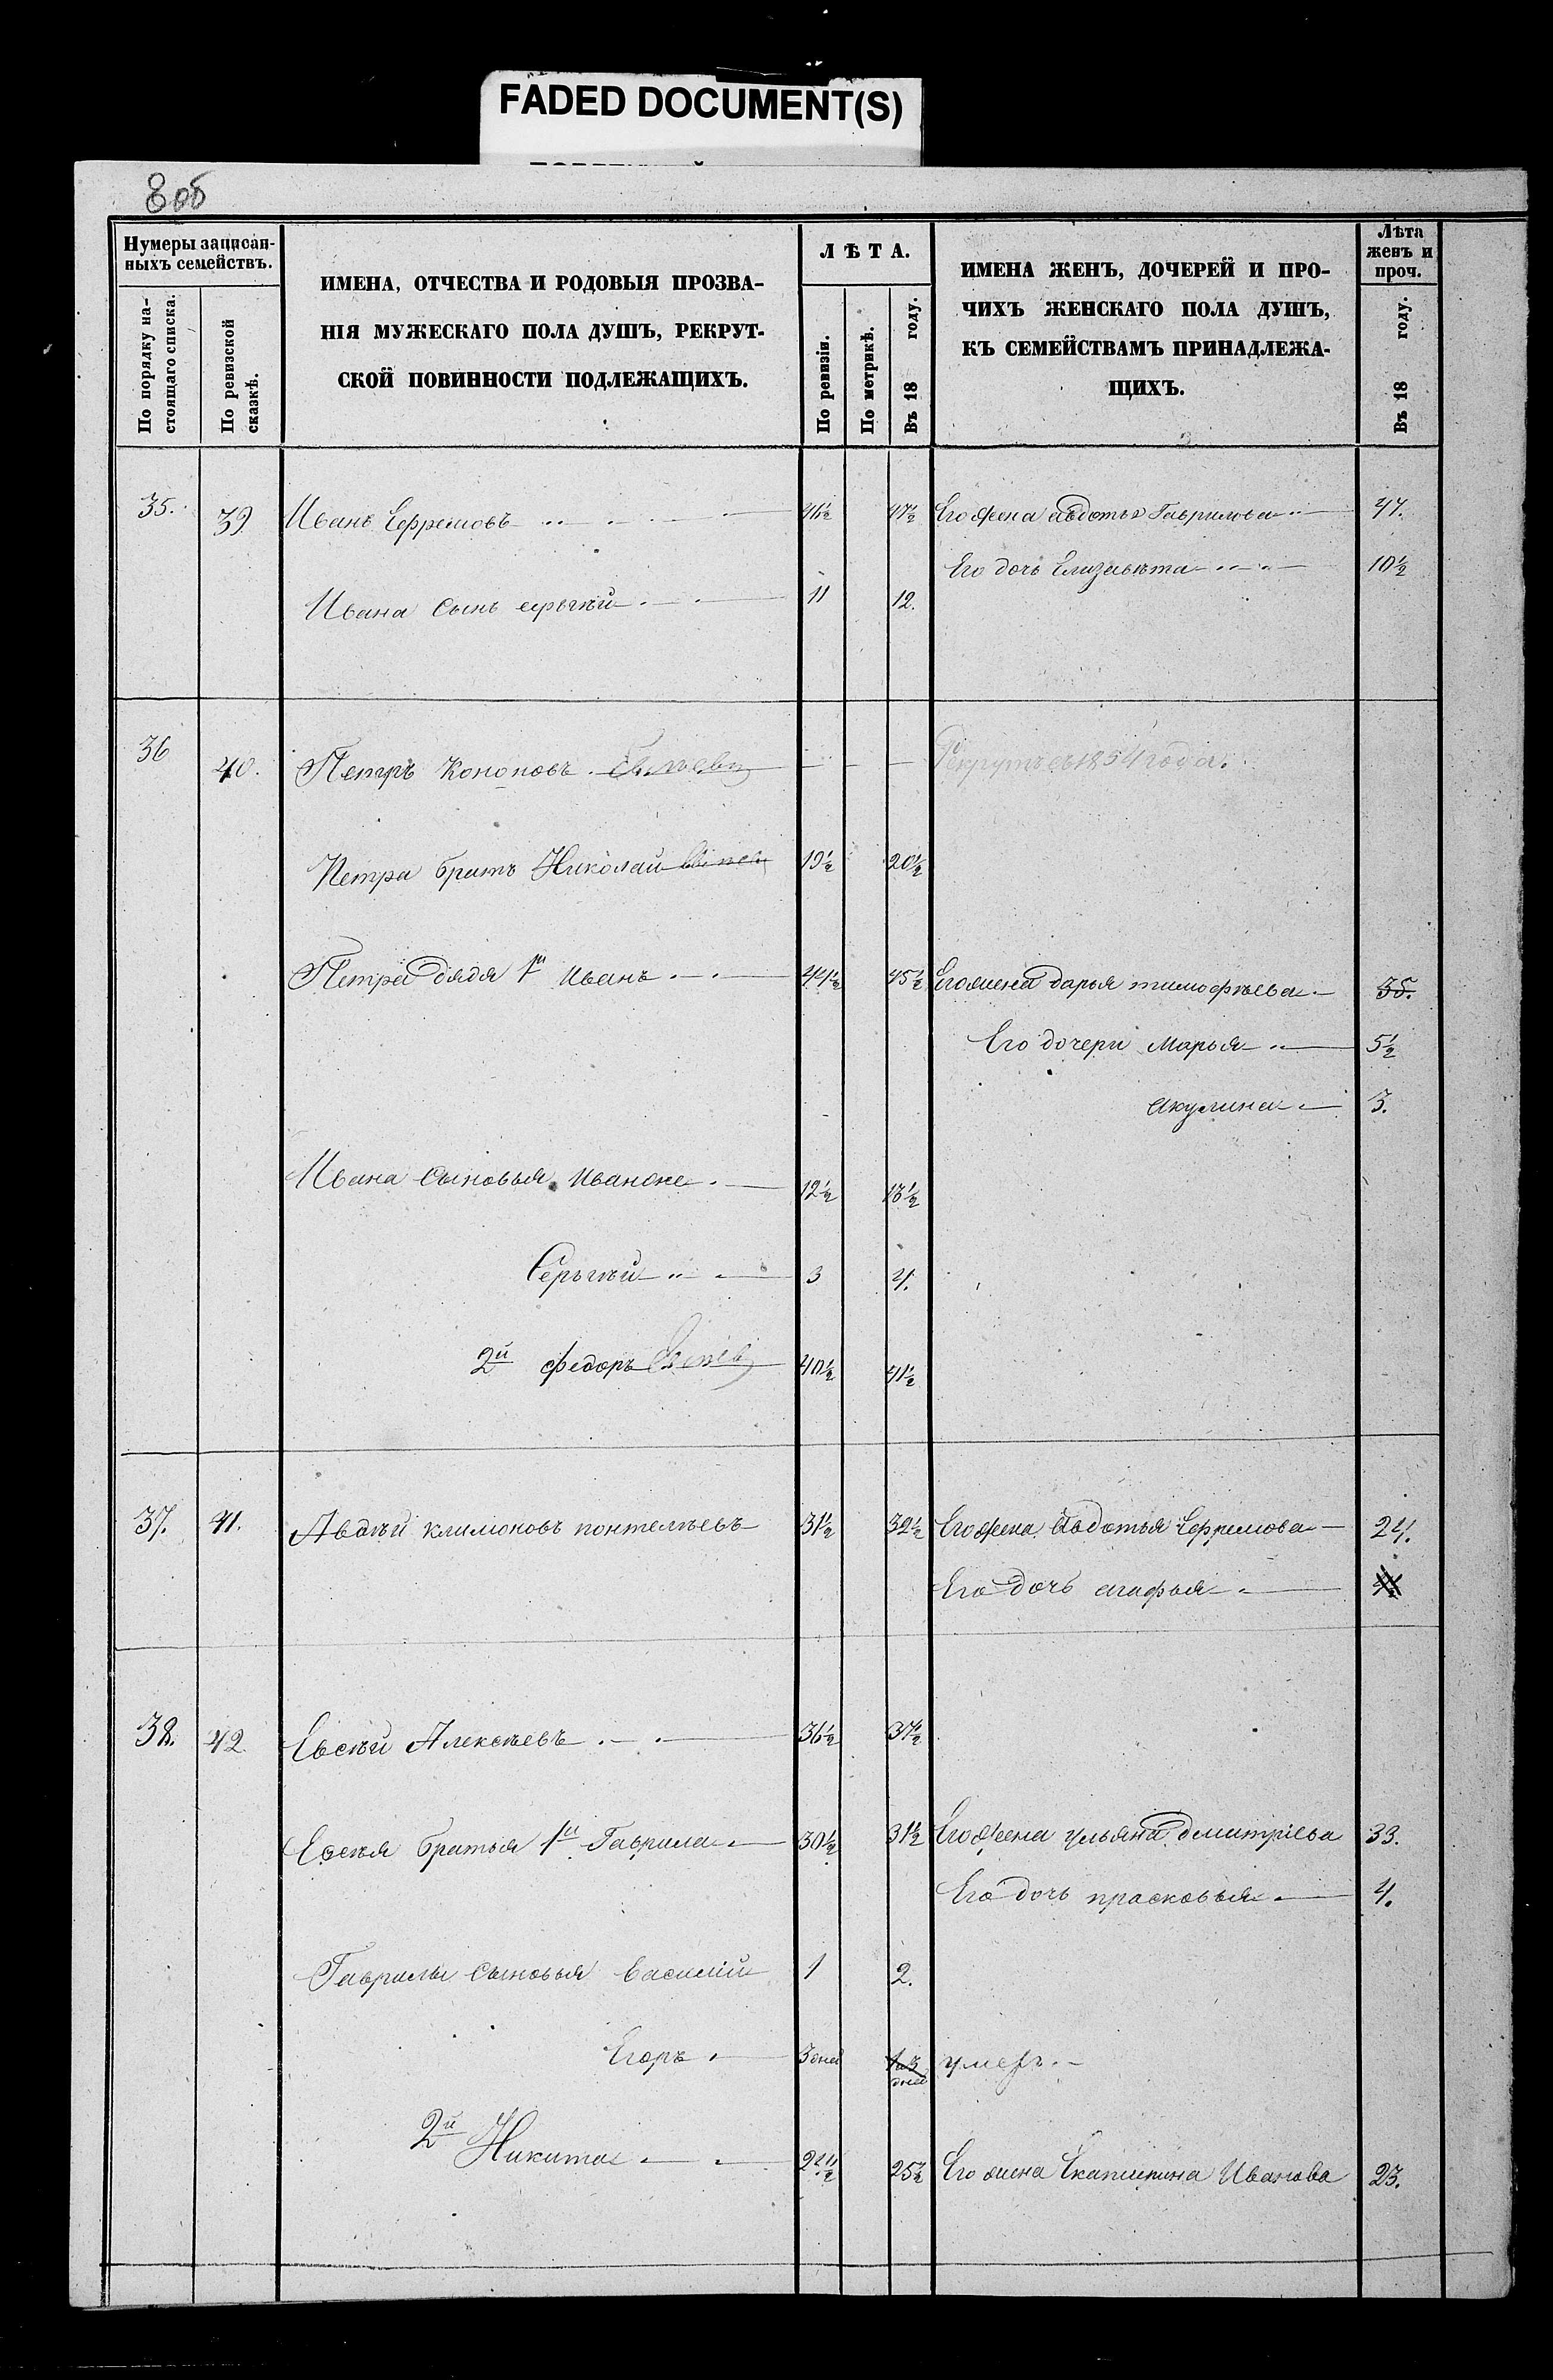 FADED DOCUMENT(S)
8 об
Нумеры записан-
ныхъ семействъ.
По порядку на-
стоящаго списка.
По ревизской
сказкѣ.
ИМЕНА, ОТЧЕСТВА И РОДОВЫЯ ПРОЗВА-
НІЯ МУЖЕСКАГО ПОЛА ДУШЪ, РЕКРУТ-
СКОЙ ПОВИННОСТИ ПОДЛЕЖАЩИХЪ.
ЛѢТА.
По ревизіи.
По метрикѣ.
Въ 18 году.
ИМЕНА ЖЕНЪ, ДОЧЕРЕЙ И ПРО-
ЧИХЪ ЖЕНСКАГО ПОЛА ДУШЪ,
КЪ СЕМЕЙСТВАМЪ ПРИНАДЛЕЖА-
ЩИХЪ.
Лѣта
женъ и
проч.
Въ 18 году.
35. 39. Иванъ Ефремовъ 46½ 47½ Его жена авдотья Гаврилова 47.
Его дочь Елизавѣта 10½
Ивана Сынъ сергѣй 11 12.
36 40. Петръ Кононовъ Рекрутъ съ 1854 года.
Петра братъ Николай 19½ 20½
Петра дядя 1й Иванъ 44½ 45½ Его жена дарья тимофѣева 35.
Его дочери Марья 5½
акулина 3.
Ивана Сыновья Иванже 12½ 13½
Серьгѣй 3 4.
2й федоръ 40½ 41½
37. 41. Авдѣй климоновъ понтелѣевъ 31½ 32½ Его жена Авдотья Ефремова 24.
Его дочь агафья
38. 42 Евсѣй Алексѣевъ 36½ 37½
Евсѣя братья 1й Гаврила 30½ 31½ Его жена ульяна дмитріева 33.
Его дочь прасковья 4.
Гаврилы Сыновья Василій 1 2.
Егоръ 3 дней 1 и 3 дней умеръ.
2й Никита 24½ 25½ Его жена Екатирина Иванова 23.